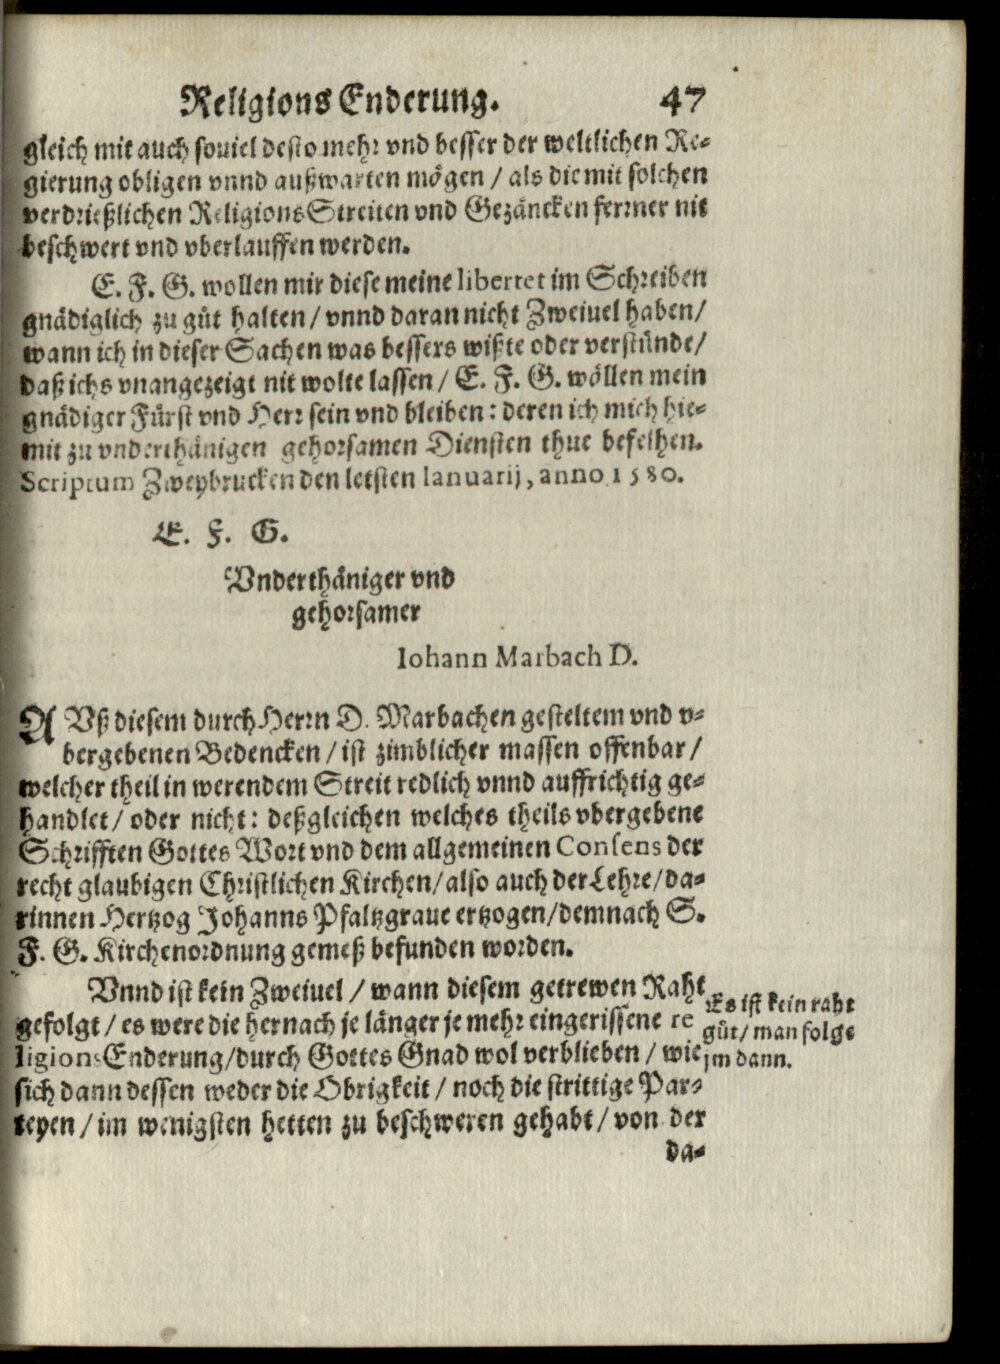 Religions Enderung. 47
gleich mit auch souiel desto mehr vnd besser der weltlichen Re-
gierung obligen vnnd außwarten mögen / als die mit solchen
verdrießlichen ReligionsStreiten vnd Gezäncken ferrner nit
beschwert vnd vberlauffen werden.
E. F. G. wollen mir diese meine libertet im Schreiben
gnädiglich zu gůt halten / vnnd daran nicht Zweiuel haben /
wann ich in dieser Sachen was bessers wißte oder verstünde /
daß ichs vnangezeigt nit wolte lassen / E. F. G. wöllen mein
gnädiger Fürst vnd Herr sein vnd bleiben: deren ich mich hie-
mit zu vnderthänigen gehorsamen Diensten thue befelhen.
Scriptum Zweybrucken den letsten Ianuarij, anno 1580.
E. F. G.
Vnderthäniger vnd
gehorsamer
Iohann Marbach D.
AVß diesem durch Herrn D. Marbachen gesteltem vnd v-
bergebenen Bedencken / ist zimblicher massen offenbar /
welcher theil in werendem Streit redlich vnnd auffrichtig ge-
handlet / oder nicht: deßgleichen welches theils vbergebene
Schrifften Gottes Wort vnd dem allgemeinen Consens der
recht glaubigen Christlichen Kirchen / also auch der Lehre / da-
rinnen Hertzog Johanns Pfaltzgraue ertzogen / demnach S.
F. G. Kirchenordnung gemeß befunden worden.
Vnnd ist kein Zweiuel / wann diesem getrewen Raht
gefolgt / es were die hernach je länger je mehr eingerissene re
ligions Enderung / durch Gottes Gnad wol verblieben / wie
sich dann dessen weder die Obrigkeit / noch die strittige Par-
teyen / im wenigsten hetten zu beschweren gehabt / von der
da-
Es ist kein raht
gůt / man folge
jm dann.